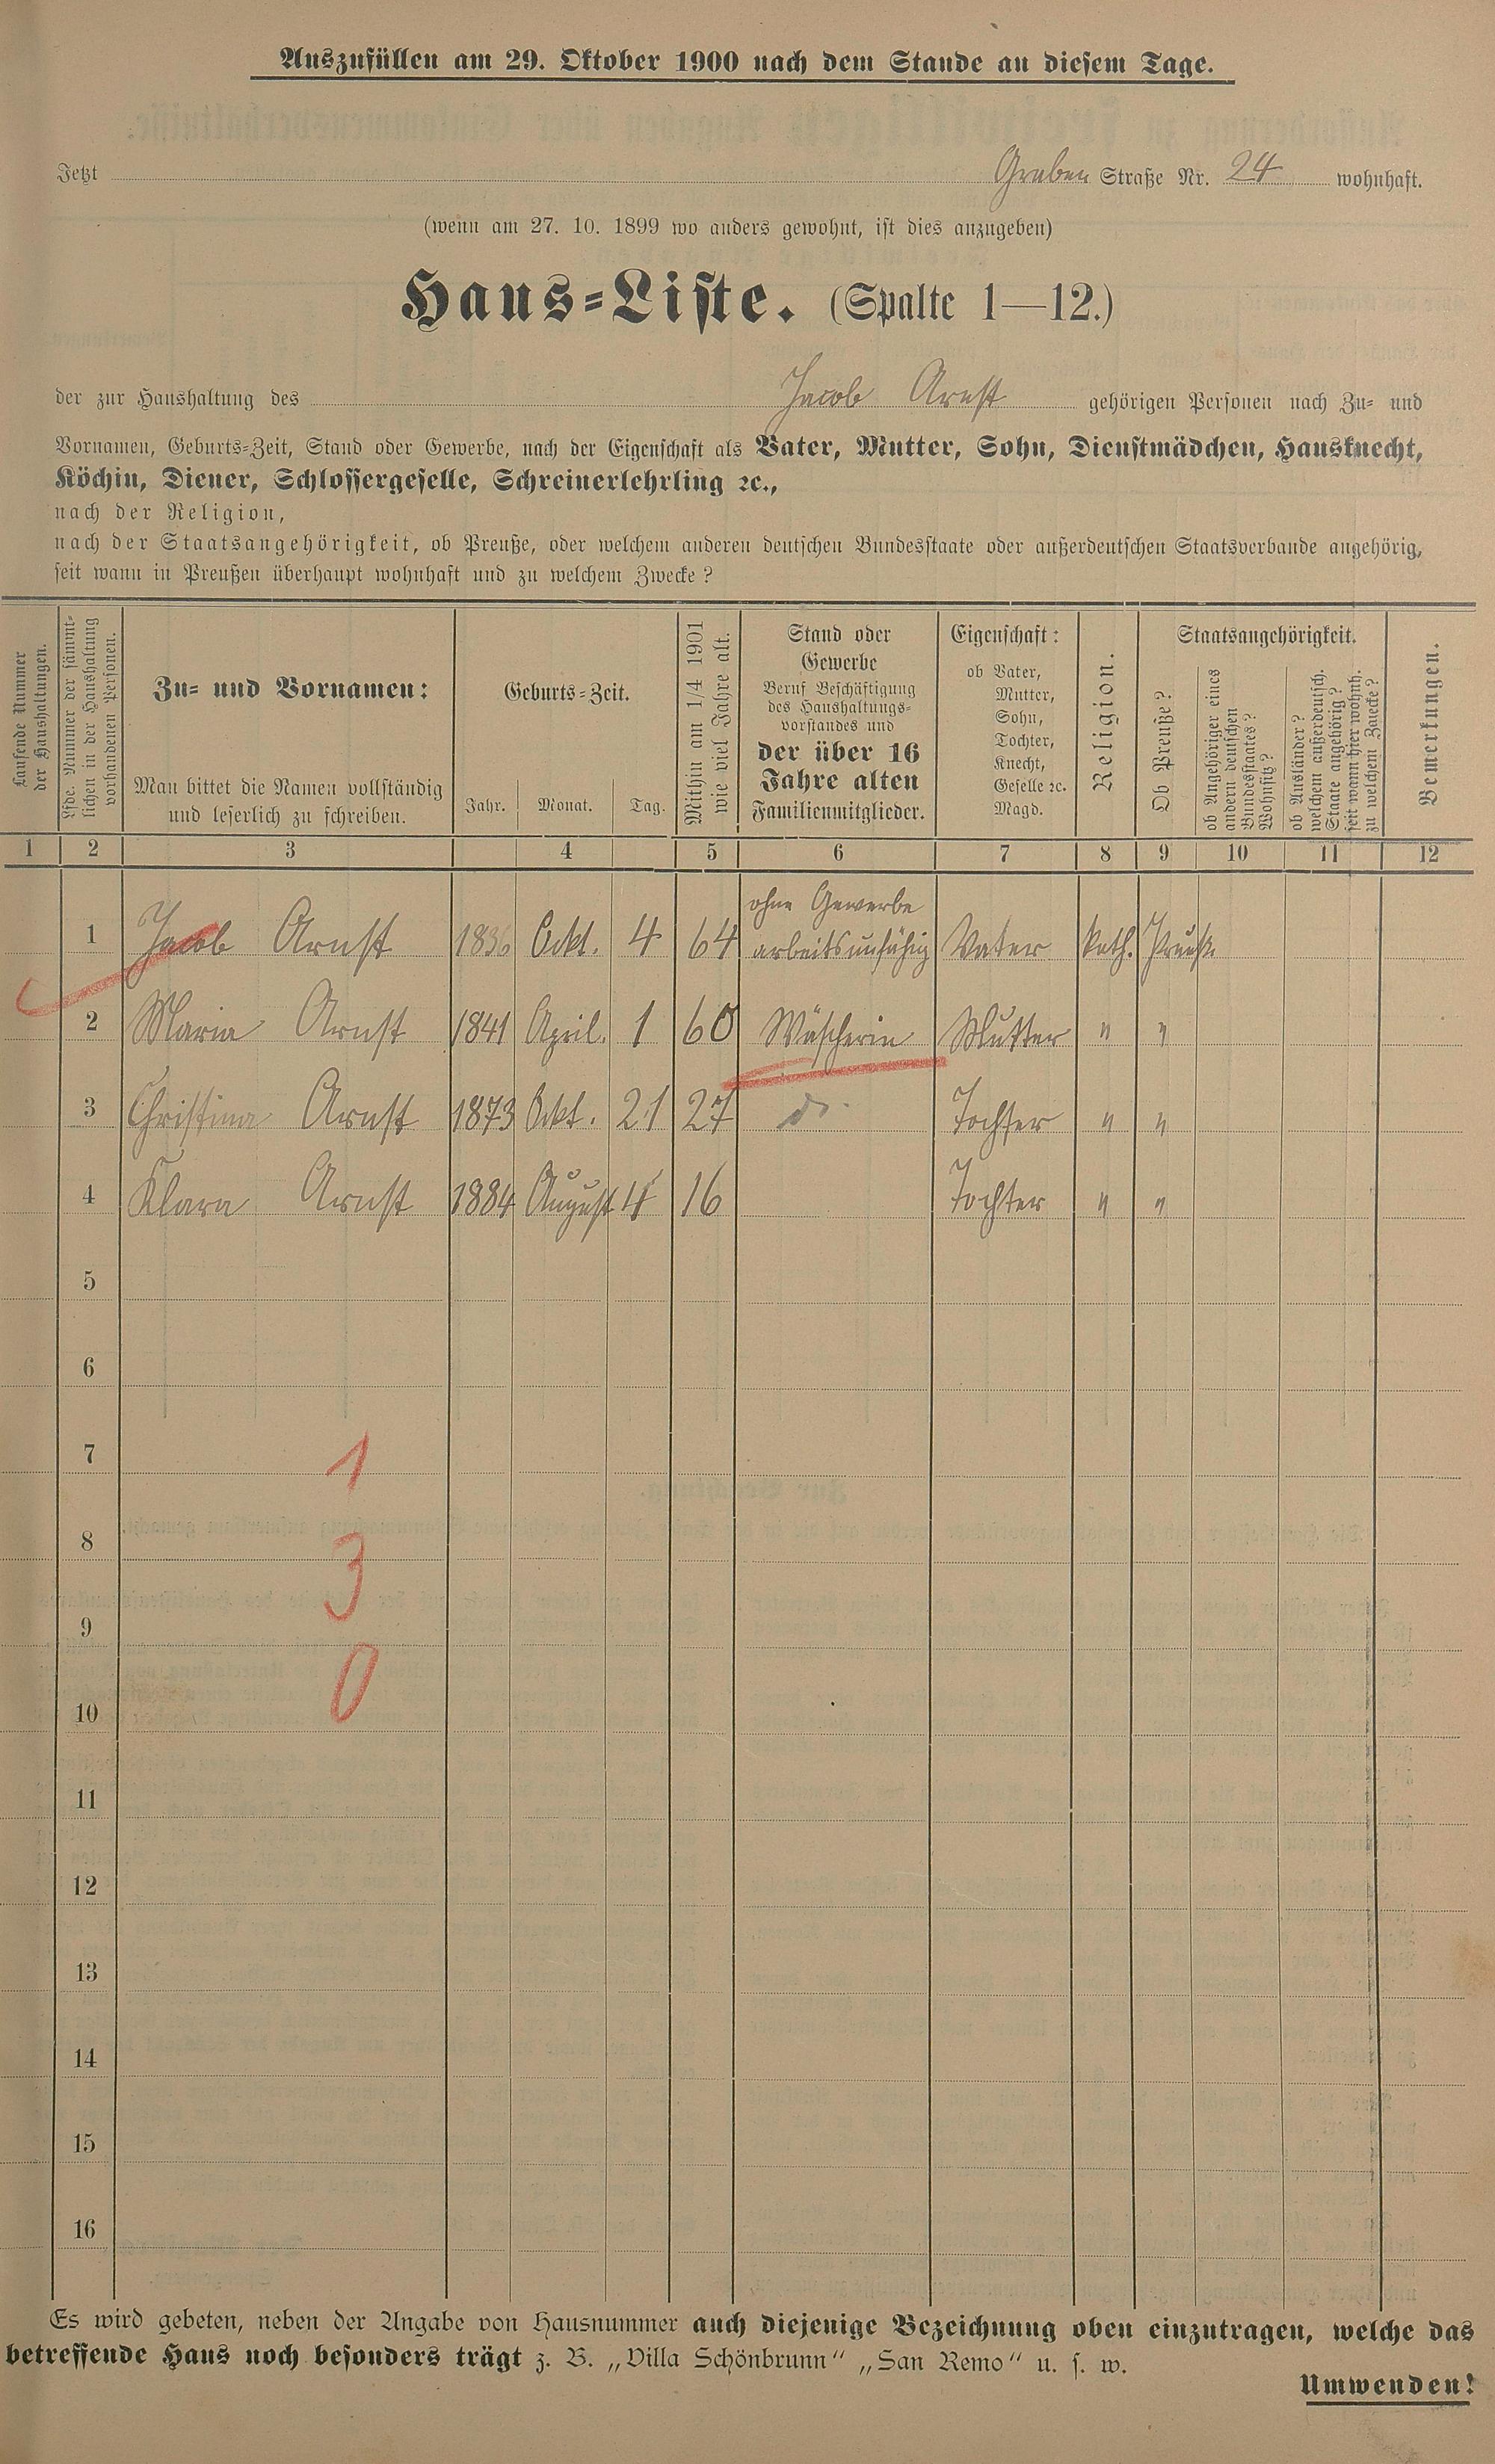 Auszufüllen am 29. Oktober 1900 nach dem Stande an diesem Tage.
Jetzt Graben Straße Nr. 24 wohnhaft.
(wenn am 27. 10. 1899 wo anders gewohnt, ist dies anzugeben)
Haus-Liste. (Spalte 1—12.)
der zur Haushaltung des Jacob Arnst gehörigen Personen nach Zu- und
Vornamen, Geburts-Zeit, Stand oder Gewerbe, nach der Eigenschaft als Vater, Mutter, Sohn, Dienstmädchen, Hausknecht,
Köchin, Diener, Schlossergeselle, Schreinerlehrling ꝛc.,
nach der Religion,
nach der Staatsangehörigkeit, ob Preuße, oder welchem anderen deutschen Bundesstaate oder außerdeutschen Staatsverbande angehörig,
seit wann in Preußen überhaupt wohnhaft und zu welchem Zwecke?
Laufende Nummer
der Haushaltungen.
Lfde. Nummer der sämmt-
lichen in der Haushaltung
vorhandenen Personen.
Zu- und Vornamen:
Man bittet die Namen vollständig
und leserlich zu schreiben.
Geburts-Zeit.
Jahr. Monat. Tag.
Mithin am 1/4 1901
wie viel Jahre alt.
Stand oder
Gewerbe
Beruf Beschäftigung
des Haushaltungs-
vorstandes und
der über 16
Jahre alten
Familienmitglieder.
Eigenschaft:
ob Vater,
Mutter,
Sohn,
Tochter,
Knecht,
Geselle ꝛc.
Magd.
Religion.
Staatsangehörigkeit.
Ob Preuße?
ob Angehöriger eines
andern deutschen
Bundesstaates?
Wohnsitz?
ob Ausländer?
welchem außerdeutsch.
Staate angehörig?
seit wann hier wohnh.
zu welchem Zwecke?
Bemerkungen.
1 2 3 4 5 6 7 8 9 10 11 12
ohne Gewerbe
1 Jacob Arnst 1836 Ockt. 4 64 arbeitsunfähig Vater kath. Preuße
2 Maria Arnst 1841 April. 1 60 Wäscherin Mutter " "
3 Christina Arnst 1873 Ockt. 21 27 Tochter " "
4 Klara Arnst 1884 August 4 16 Tochter " "
5
6
7 1
8 3
9
10 0
11
12
13
14
15
16
Es wird gebeten, neben der Angabe von Hausnummer auch diejenige Bezeichnung oben einzutragen, welche das
betreffende Haus noch besonders trägt z. B. „Villa Schönbrunn“ „San Remo“ u. s. w.
Umwenden!